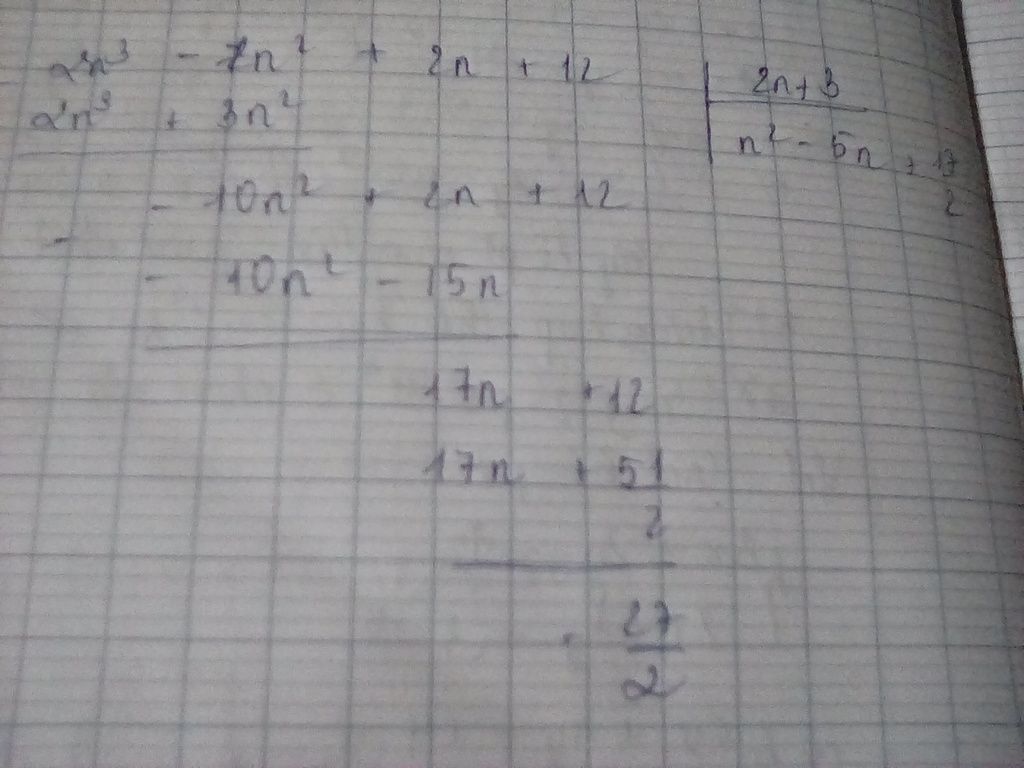 2n³ - 7n² + 2n + 12 | 2n+3
2n³ + 3n² n² - 5n + 17/2
- 10n² + 2n + 12
-
- 10n² - 15n
17n + 12
17n + 51/2
- 27/2